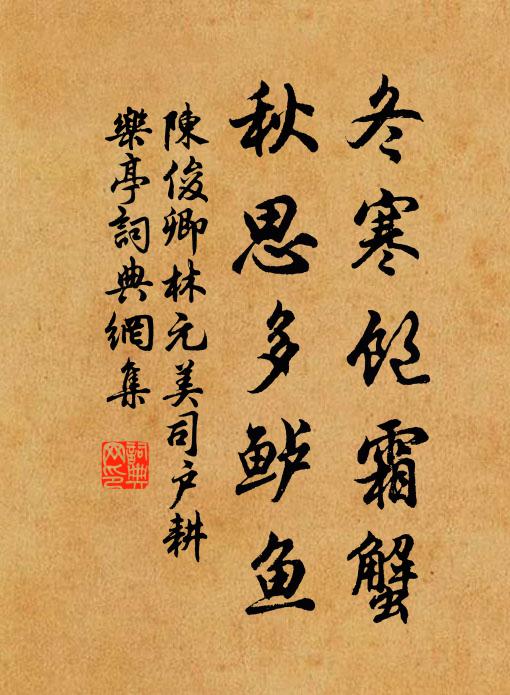 冬寒飽霜蟹
秋思多鲈鱼
陳俊卿林元美司户耕
樂亭詞典網集
詞典
网印